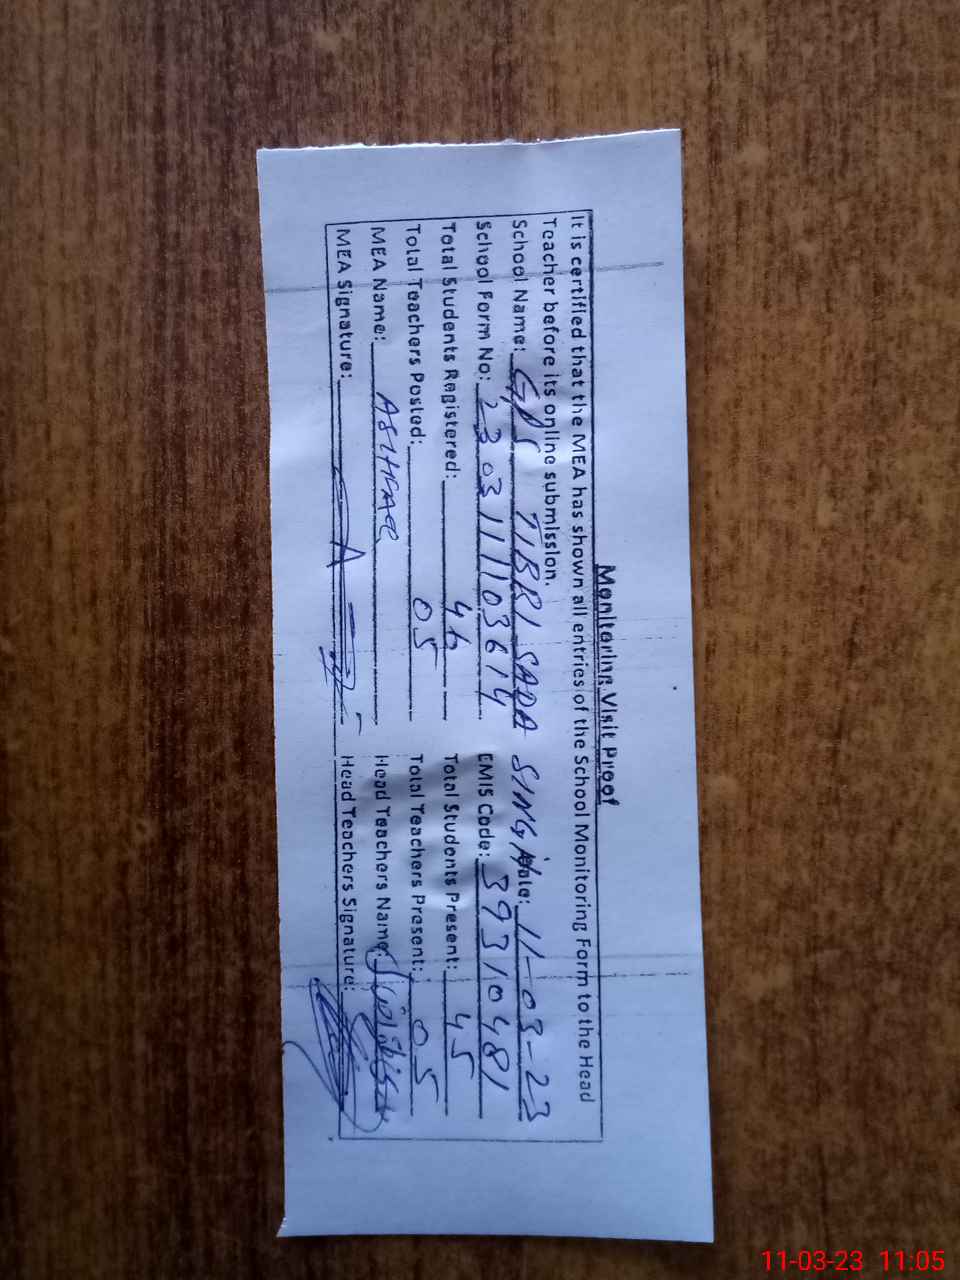 Monitoring Visit Proof
It is certified that the MEA has shown all entries of the School Monitoring Form to the Head
Teacher before its online submission.
School Name: GPS TIBRI SADA SINGH Date: 11-03-23
School Form No: 230311103614 EMIS Code: 39310481
Total Students Registered: 46 Total Students Present: 45
Total Teachers Posted: 05 Total Teachers Present: 05
MEA Name: Head Teachers Name:
MEA Signature: Head Teachers Signature:
11-03-23 11:05